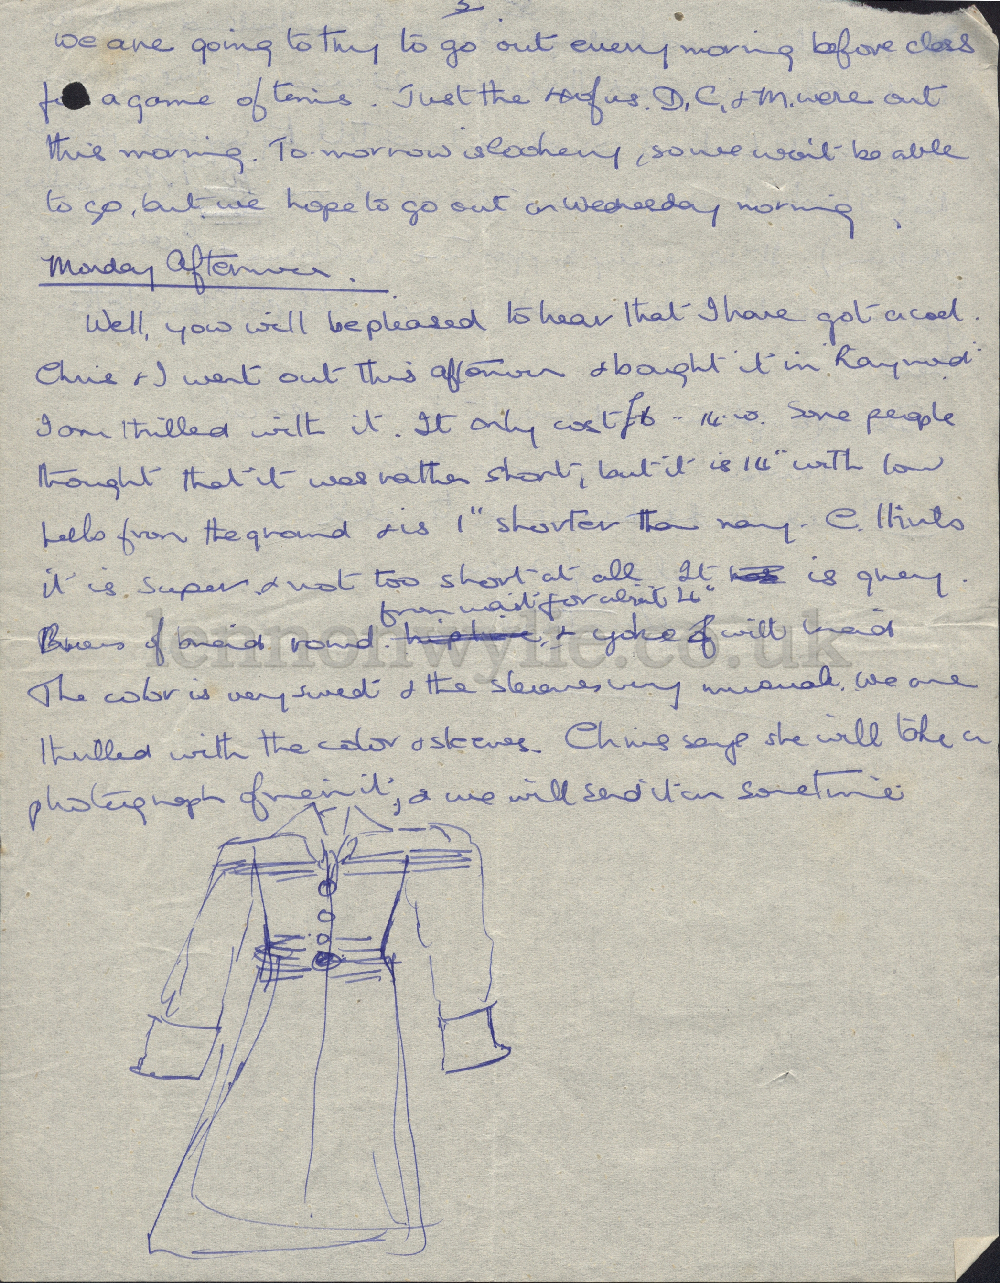 3
we are going to try to go out every morning before class
for a game of tennis. Just the of us. D, C, & M. were out
this morning. To-morrow is cookery, so we won't be able
to go, but we hope to go out on Wednesday morning.
Monday Afternoon.
Well, you will be pleased to hear that I have got a coat.
Chris & I went out this afternoon & bought it in
I am thrilled with it. It only cost £6 - 14. 0. Some people
thought that it was rather short, but it is 14" with low
heels from the ground & is 1" shorter than navy. C. thinks
it is super & not too short at all. It has is grey.
from waist for about 4"
of braid round hipline, & yoke of with braid
The color is very sweet & the sleeves very unusual. We are
thrilled with the color & sleeves. Chris says she will take a
photograph of me in it, & we will send it on sometime
lennonwylie.co.uk